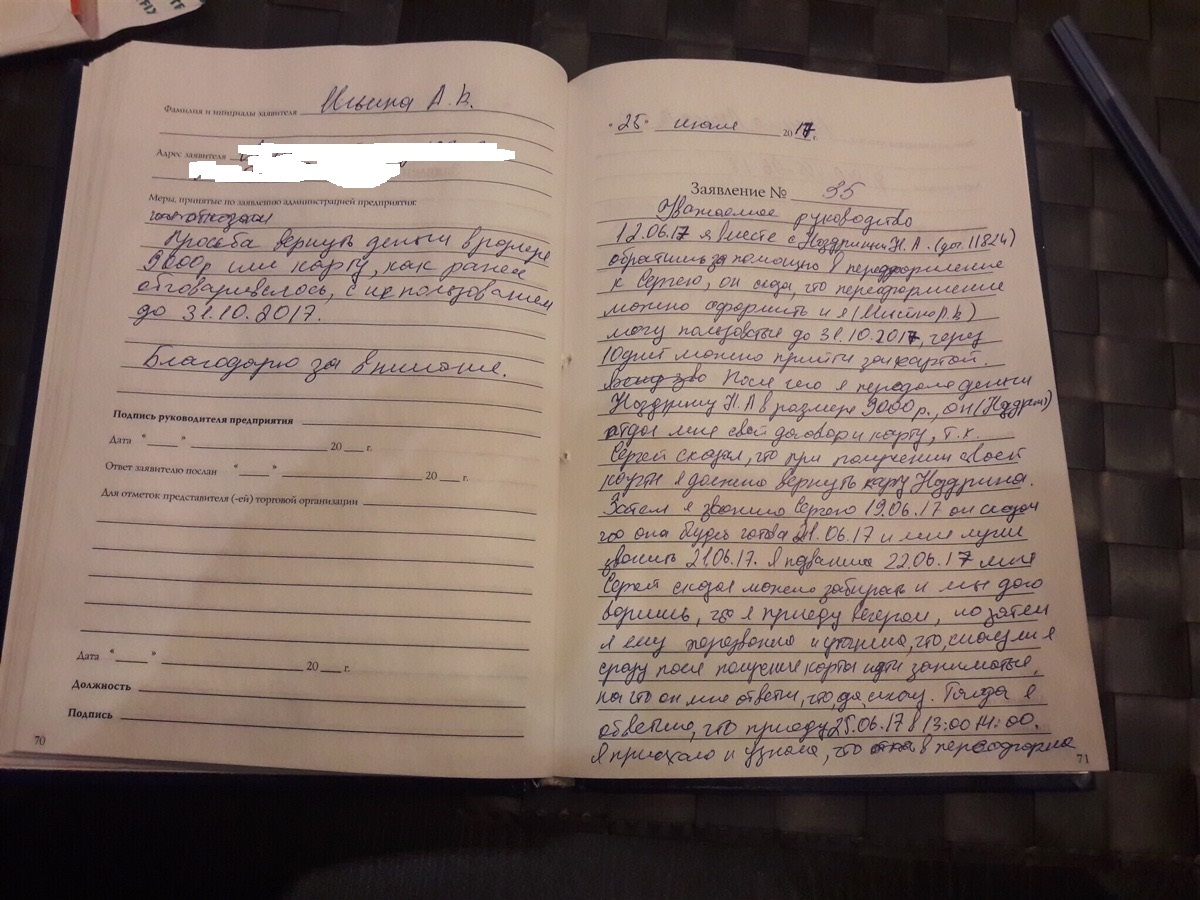 Фамилия и инициалы заявителя Ильина А.К.
Адрес заявителя
Меры, принятые по заявлению администрацией предприятия:
Просьба вернуть деньги в размере
9000р или карту, как ранее
обговаривалось, с использованием
до 31.10.2017.
Благодарю за внимание.
Подпись руководителя предприятия
Дата " " 20 г.
Ответ заявителю послан " " 20 г.
Для отметок представителя (-ей) торговой организации
Дата " " 20 г.
Должность
Подпись
70
"25" июня 2017 г.
Заявление № 35
Уважаемое руководство
12.06.17 я вместе с Ноздриным Н.А. (дог. 11824)
обратились за помощью в переоформление
к Сергею, он сказал, что переоформление
можно оформить и я (Ильина А.К)
могу пользоваться до 31.10.2017, через
10 дней можно прийти за картой.
После чего я передала деньги
Ноздрину Н.А в размере 9000 р., он (Ноздрин)
отдал мне свой договор и карту, т.к.
Сергей сказал, что при получении своей
карты я должна вернуть карту Ноздрина.
Затем я звонила Сергею 19.06.17 он сказал
что она будет готова 21.06.17 и мне нужно
звонить 21.06.17. Я позвонила 22.06.17 мне
Сергей сказал можно забирать и мы дого
ворились, что я приеду вечером, но затем
я ему перезвонила и уточнила, что, смогу ли я
сразу после получения карты идти заниматься,
на что он мне ответил, что, да, смогу. Тогда я
ответила, что приеду 25.06.17 в 13:00 14:00.
Я приехала и узнала, что в переоформле
71